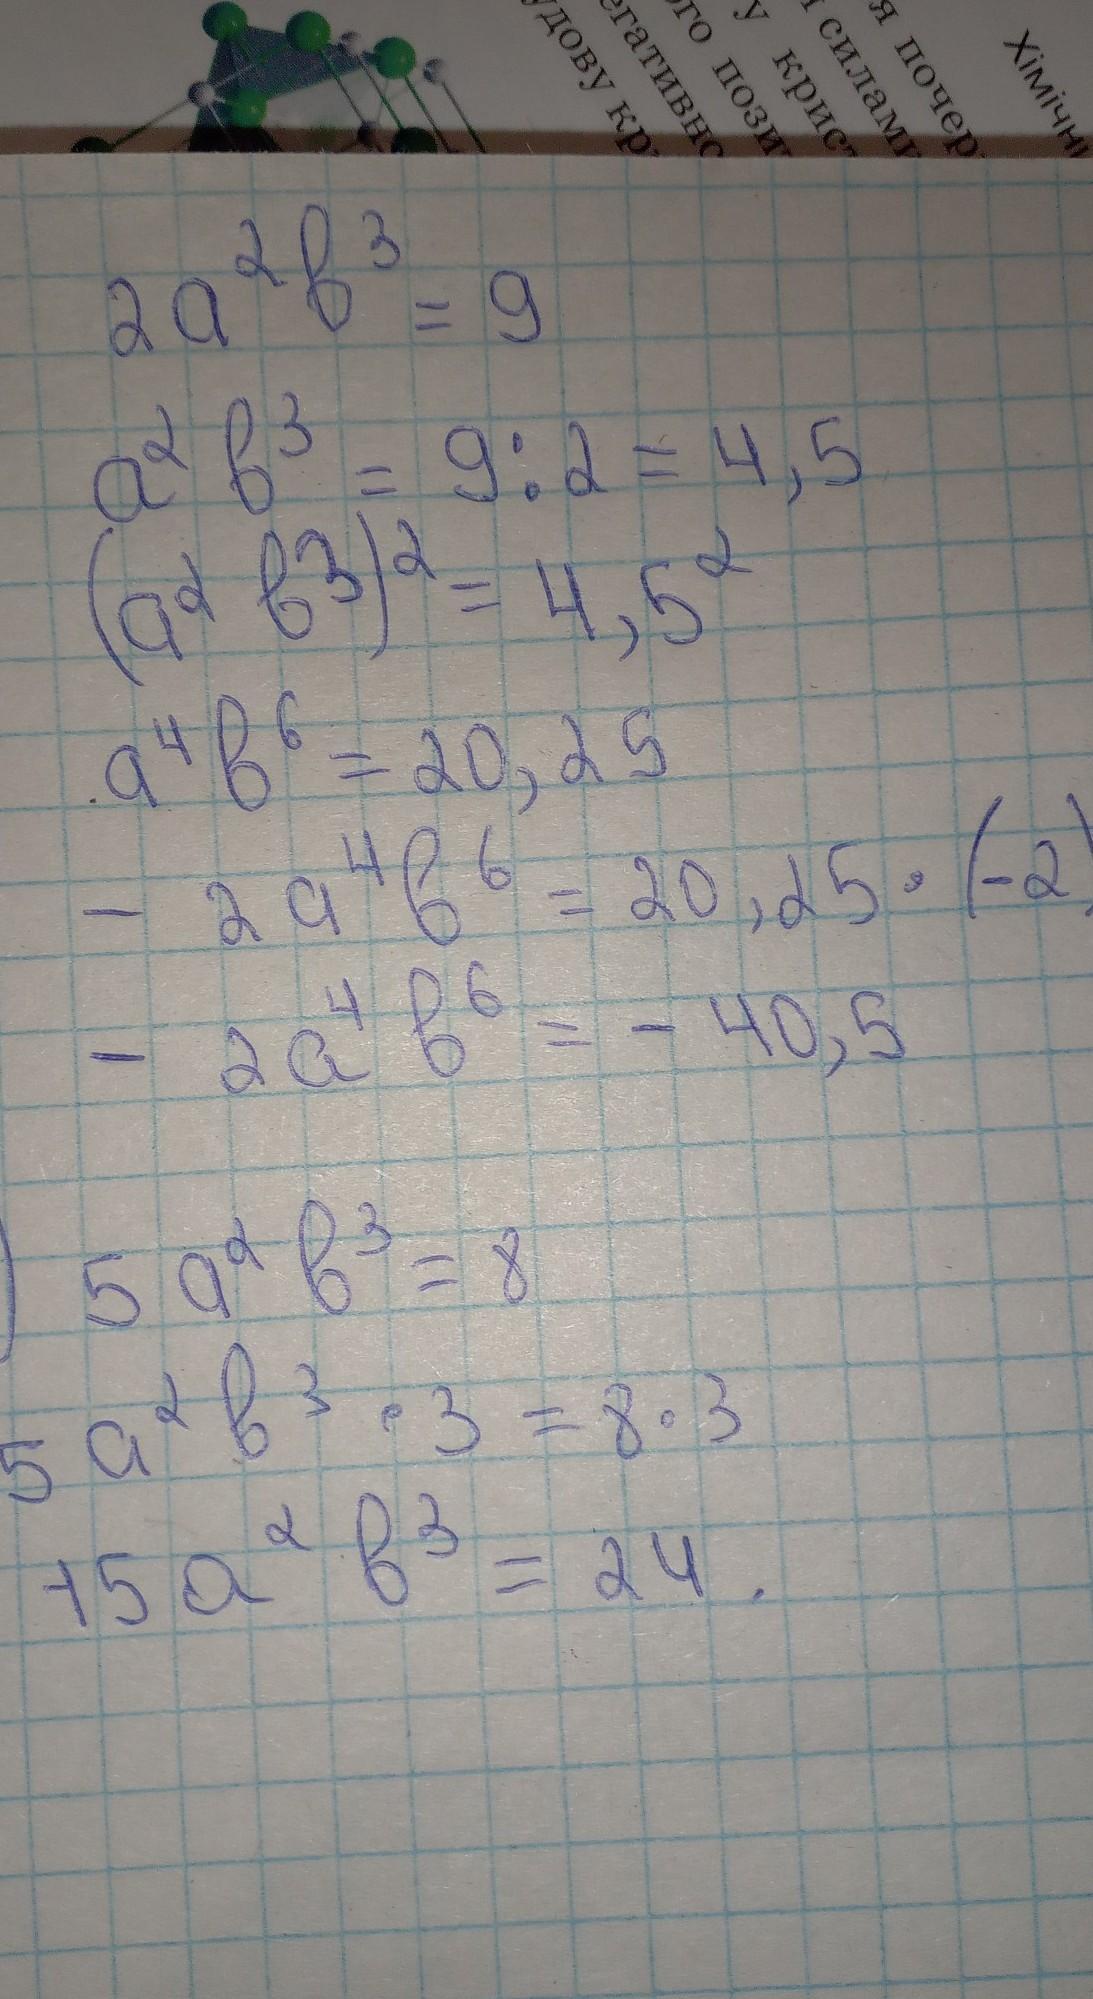 Хімічн
я почер
силами
у крист
го пози
егативно
удову кр
2a²b³ = 9
a² b³ = 9:2 = 4,5
(a² b³)² = 4,5²
a⁴b⁶ = 20,25
- 2a⁴b⁶ = 20,25 · (-2)
- 2a⁴b⁶ = - 40,5
) 5a²b³ = 8
5a²b³ · 3 = 8·3
15a²b³ = 24.